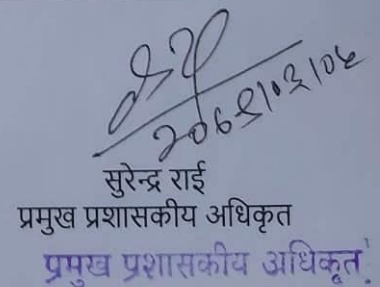 २०७९।०३।०५
सुरेन्द्र राई
प्रमुख प्रशासकीय अधिकृत
प्रमुख प्रशासकीय अधिकृत